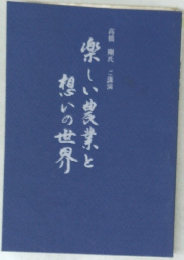 高橋 剛氏 ご講演
楽しい農業と
想いの世界